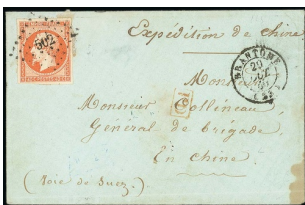 Expédition de Chine
502
BRANTOME
29
Mons
Monsieur Collineau
Général de brigade
En Chine
(Voie de Suez)